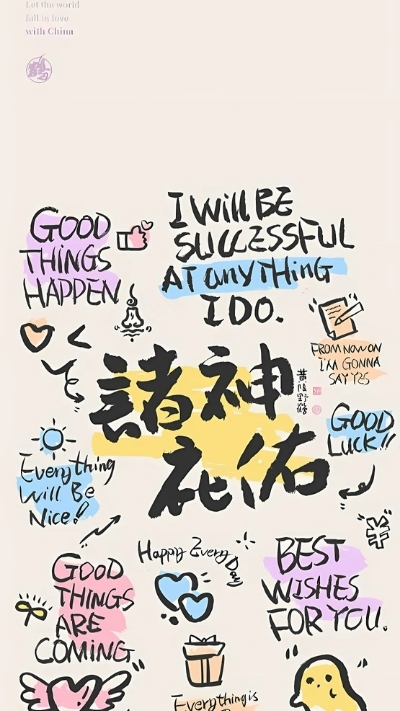 Let the world
fall in love
with China
I WILL BE
SUCCESSFUL
AT anyTHING
I DO.
GOOD
THINGS
HAPPEN
FROM NOW ON
I'M GONNA
SAY YES
諸神
祐佑
GOOD
LUCK!!
Everything
Will Be
Nice!
Happy Every Day
BEST
WISHES
FOR YOU.
GOOD
THINGS
ARE
COMING
Everything is